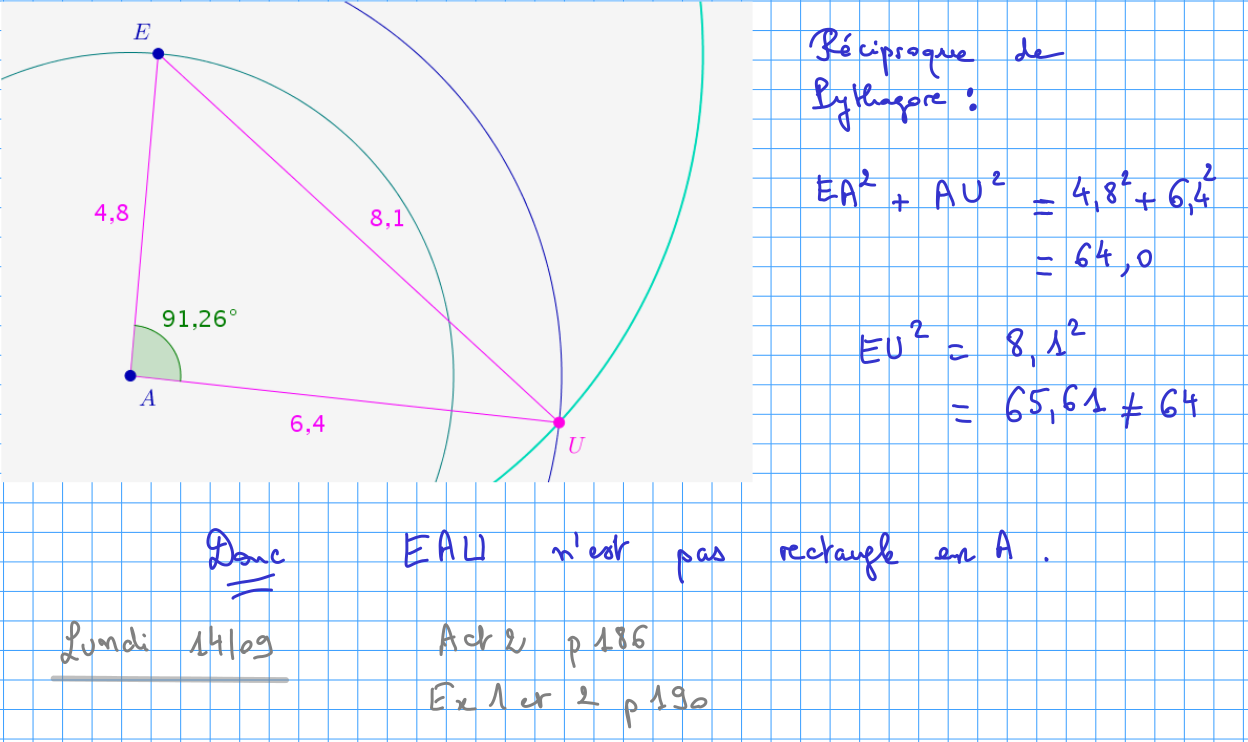 E
4,8
8,1
91,26°
A
6,4
U
Réciproque de
Pythagore :
EA² + AU² = 4,8² + 6,4²
= 64,0
EU² = 8,1²
= 65,61 ≠ 64
Donc EAU n'est pas rectangle en A.
Lundi 14/09 Act 2 p 186
Ex 1 et 2 p 190